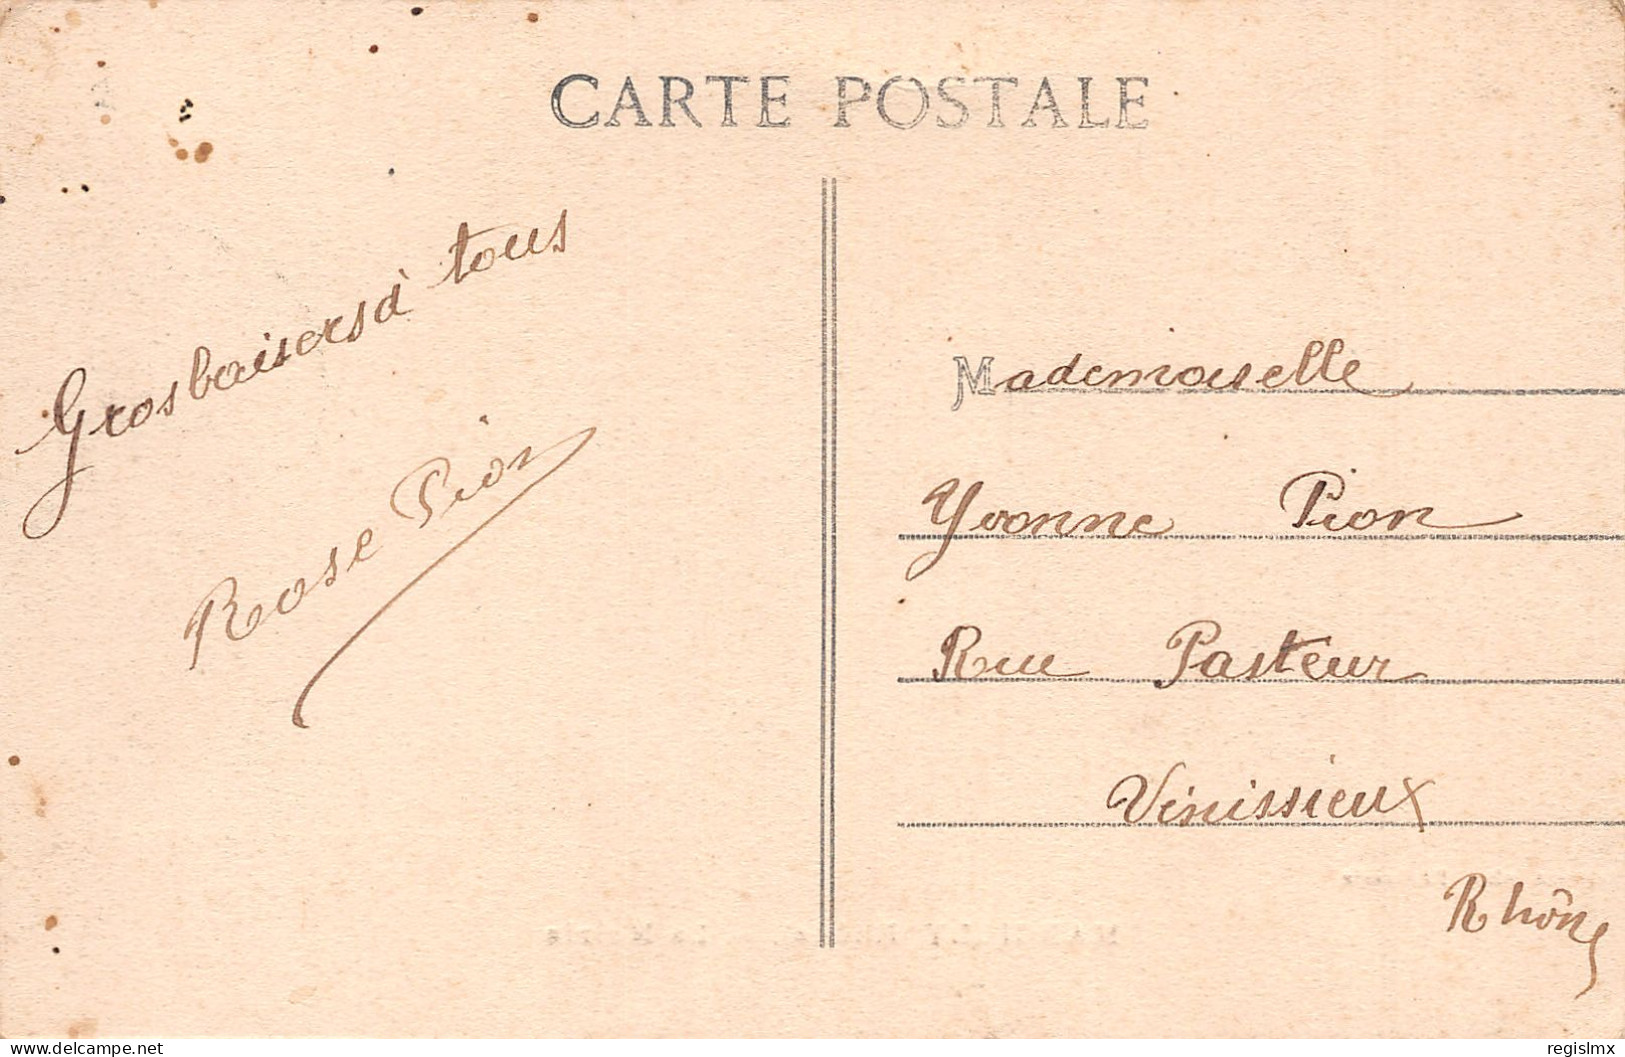 CARTE POSTALE
Gros baisers à tous
Rose Pion
Mademoiselle
Yvonne Pion
Rue Pasteur
Vinissieux
Rhône
delcampe.net
regislmx